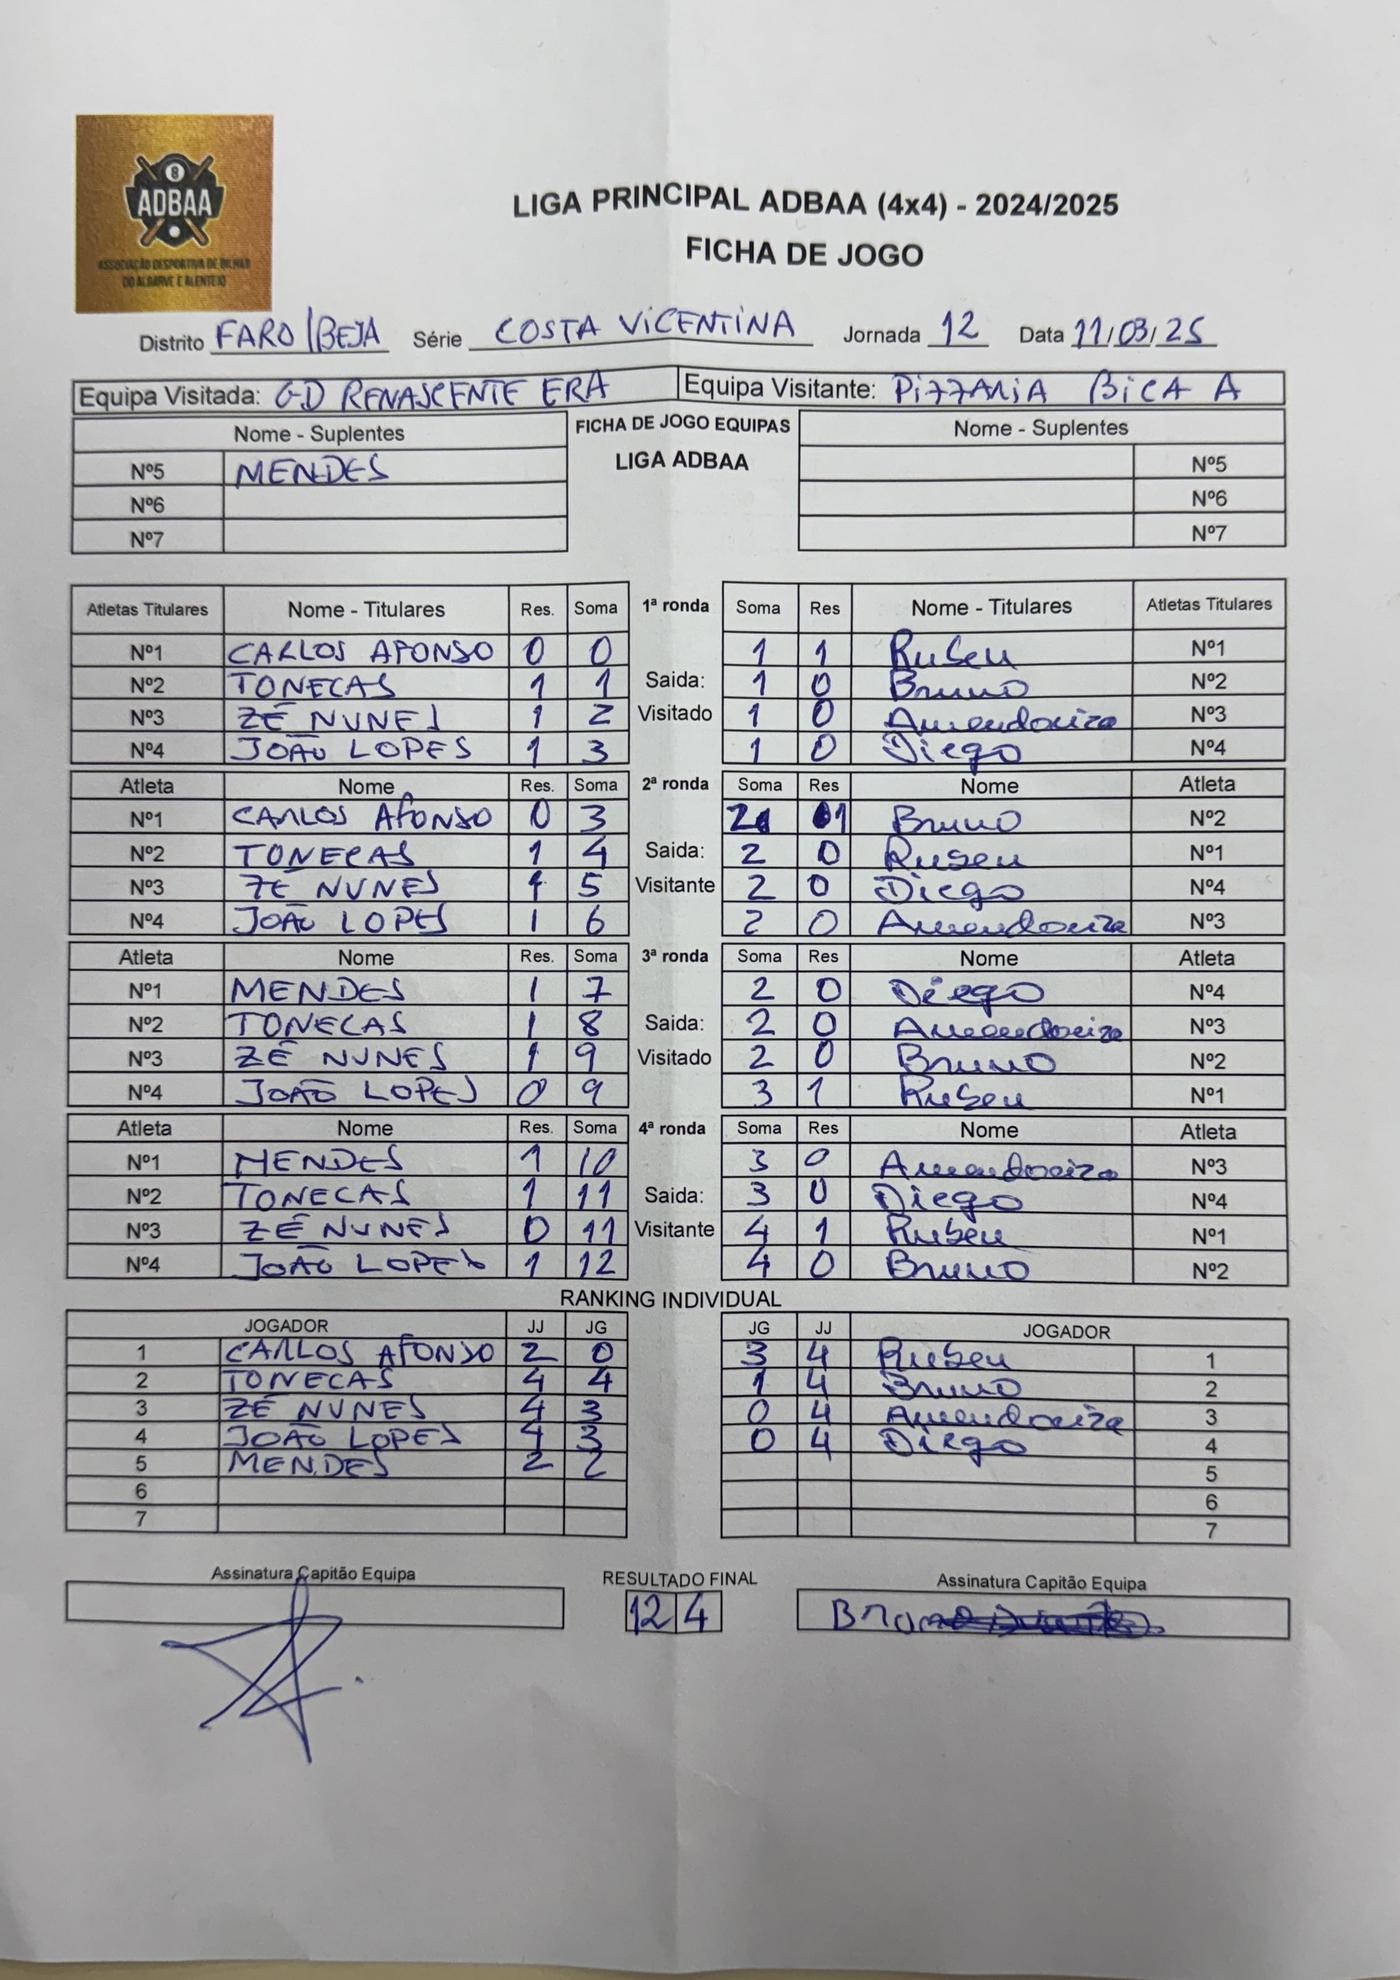 8
ADBAA
ASSOCIAÇÃO DESPORTIVA DE BILHAR
DO ALGARVE E ALENTEJO
LIGA PRINCIPAL ADBAA (4x4) - 2024/2025
FICHA DE JOGO
Distrito FARO/BEJA Série COSTA VICENTINA Jornada 12 Data 11/03/25
Equipa Visitada: GD RENASCENTE ERA Equipa Visitante: PIZZARIA BICA A
Nome - Suplentes FICHA DE JOGO EQUIPAS Nome - Suplentes
LIGA ADBAA
Nº5 MENDES Nº5
Nº6 Nº6
Nº7 Nº7
Atletas Titulares Nome - Titulares Res. Soma 1ª ronda Soma Res Nome - Titulares Atletas Titulares
Nº1 CARLOS AFONSO 0 0 1 1 Ruben Nº1
Nº2 TONECAS 1 1 Saida: 1 0 Bruno Nº2
Nº3 ZÉ NUNES 1 2 Visitado 1 0 Amendoeira Nº3
Nº4 JOÃO LOPES 1 3 1 0 Diego Nº4
Atleta Nome Res. Soma 2ª ronda Soma Res Nome Atleta
Nº1 CARLOS AFONSO 0 3 2 1 Bruno Nº2
Nº2 TONECAS 1 4 Saida: 2 0 Ruben Nº1
Nº3 ZÉ NUNES 1 5 Visitante 2 0 Diego Nº4
Nº4 JOÃO LOPES 1 6 2 0 Amendoeira Nº3
Atleta Nome Res. Soma 3ª ronda Soma Res Nome Atleta
Nº1 MENDES 1 7 2 0 Diego Nº4
Nº2 TONECAS 1 8 Saida: 2 0 Amendoeira Nº3
Nº3 ZÉ NUNES 1 9 Visitado 2 0 Bruno Nº2
Nº4 JOÃO LOPES 0 9 3 1 Ruben Nº1
Atleta Nome Res. Soma 4ª ronda Soma Res Nome Atleta
Nº1 MENDES 1 10 3 0 Amendoeira Nº3
Nº2 TONECAS 1 11 Saida: 3 0 Diego Nº4
Nº3 ZÉ NUNES 0 11 Visitante 4 1 Ruben Nº1
Nº4 JOÃO LOPES 1 12 4 0 Bruno Nº2
RANKING INDIVIDUAL
JOGADOR JJ JG JG JJ JOGADOR
1 CARLOS AFONSO 2 0 3 4 Ruben 1
2 TONECAS 4 4 1 4 Bruno 2
3 ZÉ NUNES 4 3 0 4 Amendoeira 3
4 JOÃO LOPES 4 3 0 4 Diego 4
5 MENDES 2 2 5
6 6
7 7
Assinatura Capitão Equipa RESULTADO FINAL Assinatura Capitão Equipa
12 4